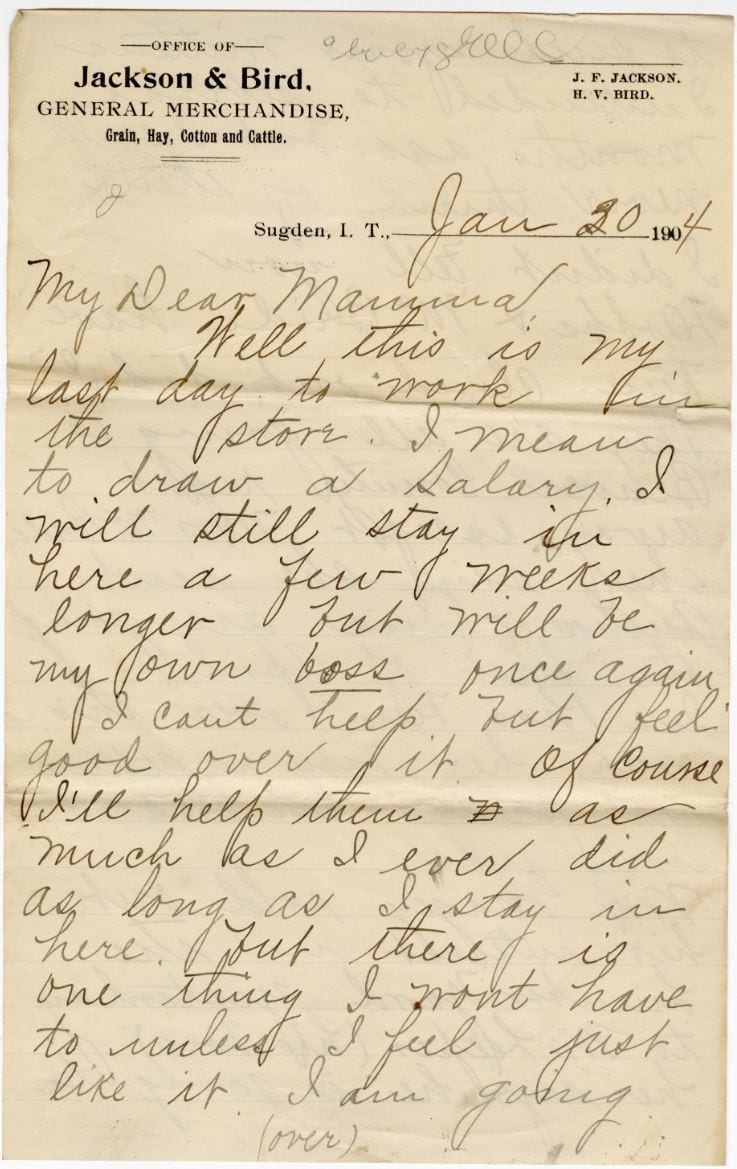 OFFICE OF
Jackson & Bird,
GENERAL MERCHANDISE,
Grain, Hay, Cotton and Cattle.
J. F. JACKSON.
H. V. BIRD.
Sugden, I. T., Jan 30 1904
My Dear Mamma,
Well this is my
last day to work in
the store. I mean
to draw a salary. I
will still stay in
here a few weeks
longer but will be
my own boss once again
I cant help but feel
good over it. Of course
I'll help them as
much as I ever did
as long as I stay in
here. but there is
one thing I wont have
to unless I feel just
like it. I am going
(over)